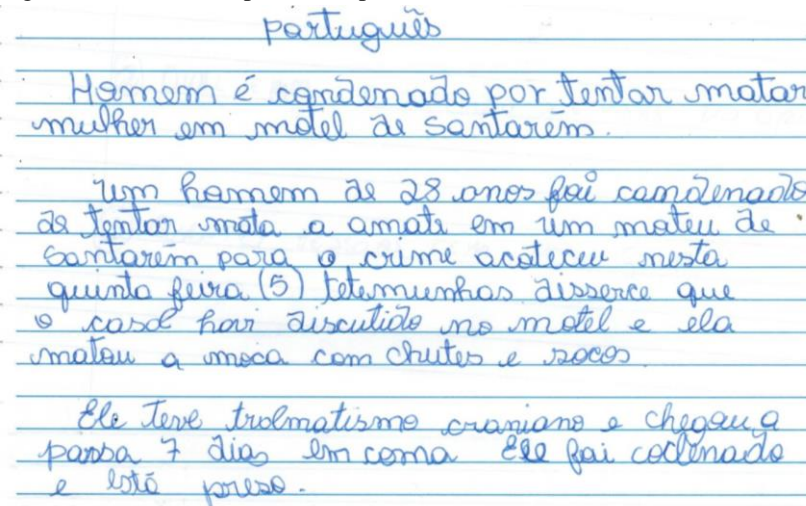 português
Homem é condenado por tentar matar
mulher em motel de santarém.
um homem de 28 anos foi comdenado
de tentar mata a amate em um moteu de
santarém para o crime acoteceu nesta
quinta feira (5) tetemunhas disserce que
o casol havi discutido no motel e ela
matou a moca com chutes e socos
Ele teve trolmatismo craniano e chegou a
passa 7 dias em coma Ele foi codenado
e está preso.